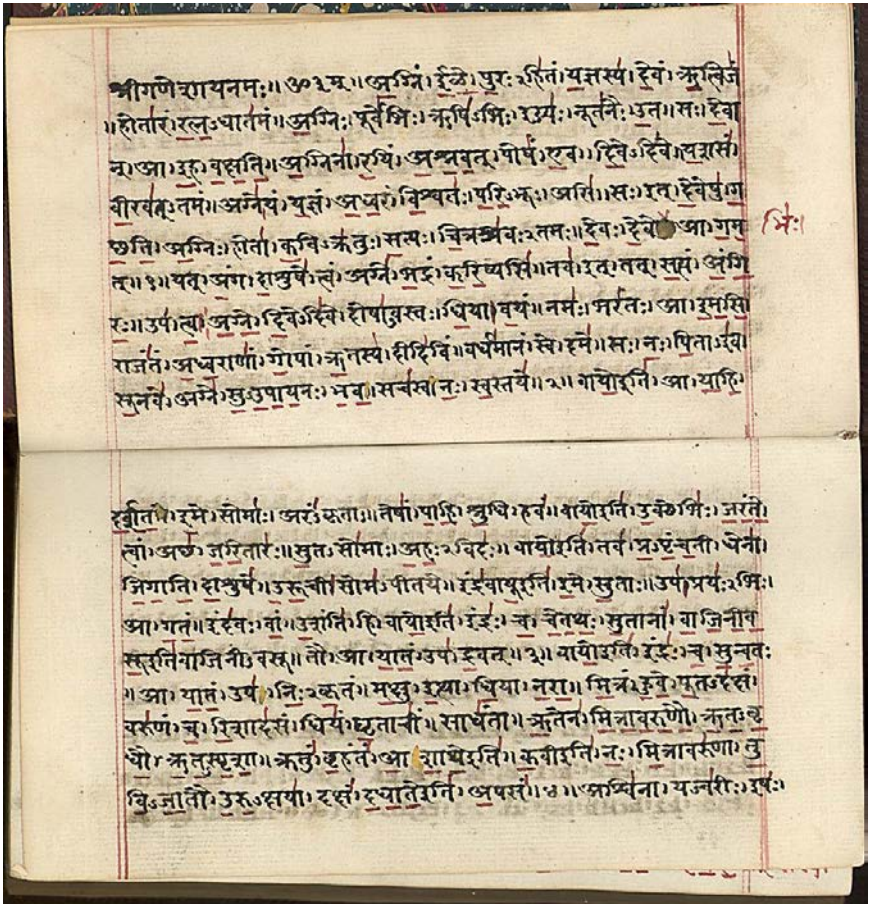 श्रीगणेशायनमः॥ॐ३म्॥अ॒ग्निं।ई॒ळे॒।पु॒रःऽहि॑तं।य॒ज्ञस्य॑।दे॒वं।ऋ॒त्विजं॑
॥होता॑रं।र॒त्न॒ऽधात॑मं॥अ॒ग्निः।पूर्वे॑भिः।ऋषि॑ऽभिः।ईड्यः॑।नूत॑नैः।उ॒त॥सः।दे॒वा
न्।आ।इ॒ह।व॒क्ष॒ति॒॥अ॒ग्निना॑।र॒यिं।अ॒श्न॒व॒त्।पोषं॑।ए॒व।दि॒वेऽदि॑वे।य॒शसं॑
वी॒रव॑त्ऽतमं॥अग्ने॑।यं।य॒ज्ञं।अ॒ध्व॒रं।वि॒श्वतः॑।प॒रि॒ऽभूः।असि॑।सः।इत्।दे॒वेषु॑।ग॒
च्छ॒ति॒।अ॒ग्निः।होता॑।क॒विऽक्र॑तुः।स॒त्यः।चि॒त्रश्र॑वःऽतमः॥दे॒वः।दे॒वे।आ।ग॒म॒
भिः॑।
त्॥१॥यत्।अं॒ग।दा॒शुषे॑।त्वं।अग्ने॑।भ॒द्रं।क॒रि॒ष्यसि॑॥तव॑।इत्।तत्।स॒त्यं।अं॒गि॒
रः॒॥उप॑।त्वा॒।अ॒ग्ने॒।दि॒वेऽदि॑वे।दोषा॑ऽवस्तः।धि॒या।व॒यं॥नमः॑।भरं॑तः।आ।इ॒म॒सि॒
राजं॑तं।अ॒ध्व॒राणां॑।गो॒पां।ऋ॒तस्य॑।दीदि॑विं॥वर्ध॑मानं।स्वे।दमे॑॥सः।नः॒।पि॒ताऽइ॑व।
सू॒नवे॑।अग्ने॑।सु॒ऽउ॒पा॒य॒नः।भ॒व॒।सच॑स्व।नः॒।स्व॒स्तये॑॥२॥वायो॒इति॑।आ।या॒हि॒।
द॒र्श॒त॒।इ॒मे।सोमाः॑।अरं॑ऽकृताः॥तेषां॑।पा॒हि॒।श्रु॒धि।हवं॑॥वायो॒इति॑।उ॒क्थेभिः॑।ज॒रं॒ते॒
त्वां।अच्छ॑।ज॒रि॒तारः॑॥सु॒तऽसो॑माः।अ॒हः॒ऽविदः॑॥वायो॒इति॑।तव॑।प्र॒ऽपृं॒च॒ती।धेना॑।
जि॒गा॒ति॒।दा॒शुषे॑॥उ॒रू॒ची।सोम॑ऽपीतये॥इंद्र॑वायू॒इति॑।इ॒मे।सु॒ताः॥उप॑।प्रयः॑ऽभिः।
आ।ग॒तं॒॥इंद॑वः।वां॒।उ॒शंति॑।हि।वायो॒इति॑।इंद्रः॑।च॒।चे॒त॒थः॒।सु॒तानां॑।वा॒जि॒नी॒व॒
सू॒इति॑वाजिनीऽवसू॥तौ।आ।या॒तं॒।उप॑।द्र॒वत्॥३॥वायो॒इति॑।इंद्रः॑।च॒।सु॒न्व॒तः
॥आ।या॒तं॒।उप॑।निः॒ऽकृ॒तं॥म॒क्षु।इ॒त्था।धि॒या।न॒रा॒॥मि॒त्रं।हु॒वे॒।पू॒तऽद॑क्षं।
वरु॑णं।च॒।रि॒शाद॑सं।धियं॑।घृ॒ताचीं॑॥साधं॑ता॥ऋ॒तेन॑।मि॒त्रा॒व॒रु॒णौ॒।ऋ॒त॒ऽवृ॒
धौ॒।ऋ॒त॒ऽस्पृ॒शा॒॥क्रतुं॑।बृ॒हंतं॑।आ॒शा॒थे॒इति॑॥क॒वीइति॑।नः॒।मि॒त्रावरु॑णा।तु॒
वि॒ऽजा॒तौ।उ॒रु॒ऽक्षया॑।दक्षं॑।द॒धा॒ते॒इति॑।अ॒पसं॑॥४॥अश्वि॑ना।यज्व॑रीः।इषः॑।